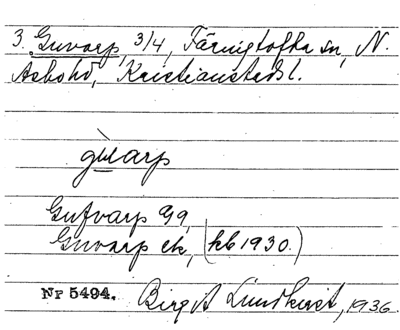 3. Guvarp, 3/4, Färingtofta sn, N.
Asbohd, Kristianstads l.
gùarp
Gufvarp Gg,
Guvarp ek, (kb 1930.)
Nr 5494. Birgit Lundkvist, 1936.